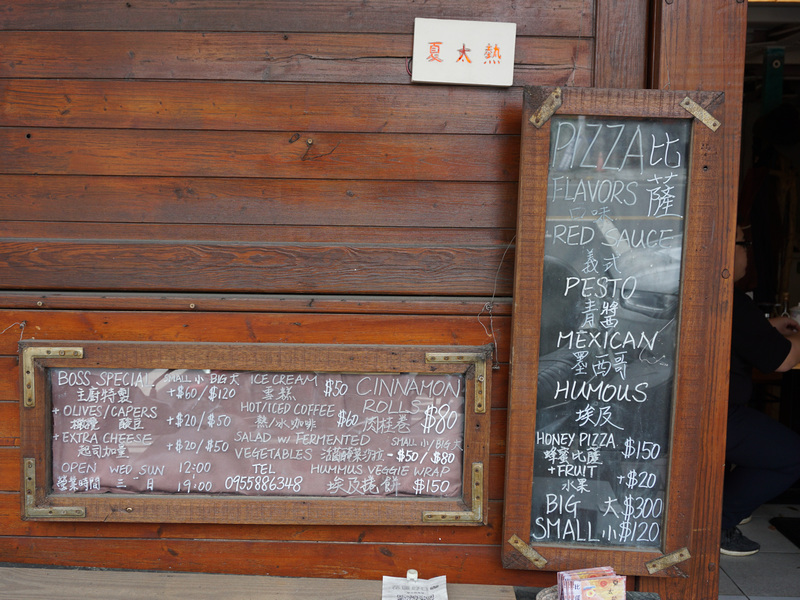 夏太熱
PIZZA 比薩
FLAVORS
口味
RED SAUCE
義式
PESTO
青醬
MEXICAN
墨西哥
HUMOUS
埃及
HONEY PIZZA $150
蜂蜜比薩
+FRUIT +$20
水果
BIG 大 $300
SMALL 小 $120
BOSS SPECIAL SMALL 小 BIG 大
主廚特製 +$60/$120
+ OLIVES/CAPERS
橄欖 酸豆 +$20/$50
+ EXTRA CHEESE
起司加量 +$20/$50
OPEN WED SUN 12:00
營業時間 三-日 19:00
ICE CREAM $50
雪糕
HOT/ICED COFFEE $60
熱/冰咖啡
CINNAMON
ROLLS $80
肉桂卷
SALAD W/ FERMENTED SMALL 小/BIG 大
VEGETABLES -$50/$80
TEL HUMMUS VEGGIE WRAP
0955886348 埃及捲餅 $150